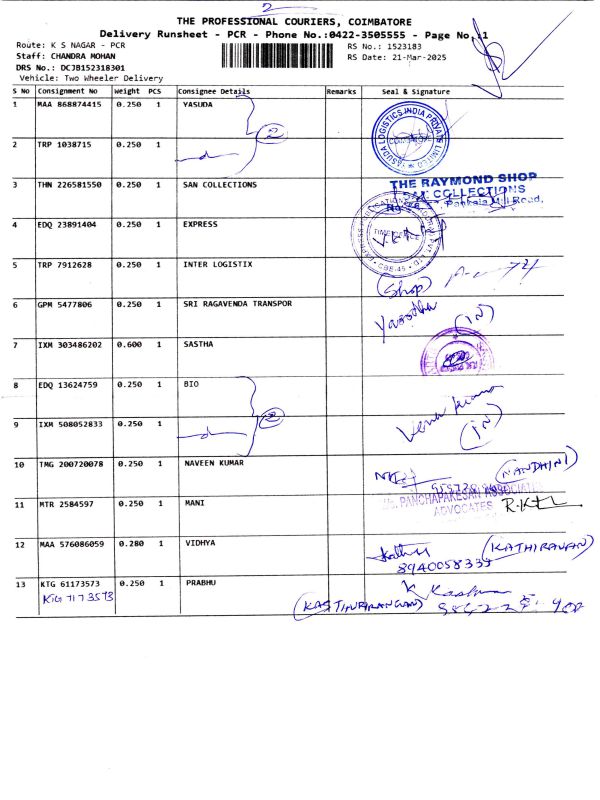 2
THE PROFESSIONAL COURIERS, COIMBATORE
Delivery Runsheet - PCR - Phone No.:0422-3505555 - Page No.:1
Route: K S NAGAR - PCR RS No.: 1523183
Staff: CHANDRA MOHAN RS Date: 21-Mar-2025
DRS No.: DCJB152318301
Vehicle: Two Wheeler Delivery
S No Consignment No Weight PCS Consignee Details Remarks Seal & Signature
1 MAA 868874415 0.250 1 YASUDA
2
YASUDA LOGISTICS INDIA PRIVATE LIMITED
2 TRP 1038715 0.250 1
3 THN 226581550 0.250 1 SAN COLLECTIONS
THE RAYMOND SHOP
COLLECTIONS
Mill Road,
4 EDQ 23891404 0.250 1 EXPRESS
5 TRP 7912628 0.250 1 INTER LOGISTIX
(Shop)
6 GPM 5477806 0.250 1 SRI RAGAVENDA TRANSPOR
Yasodha (IN)
7 IXM 303486202 0.600 1 SASTHA
8 EDQ 13624759 0.250 1 BIO
2
9 IXM 508052833 0.250 1
(IN)
10 TMG 200720078 0.250 1 NAVEEN KUMAR
(NANDHINI)
11 MTR 2584597 0.250 1 MANI
PANCHAPAKESAN ASSOCIATES
ADVOCATES
12 MAA 576086059 0.280 1 VIDHYA
(KATHIRAVAN)
8940058339
13 KTG 61173573 0.250 1 PRABHU
KTG 7173573